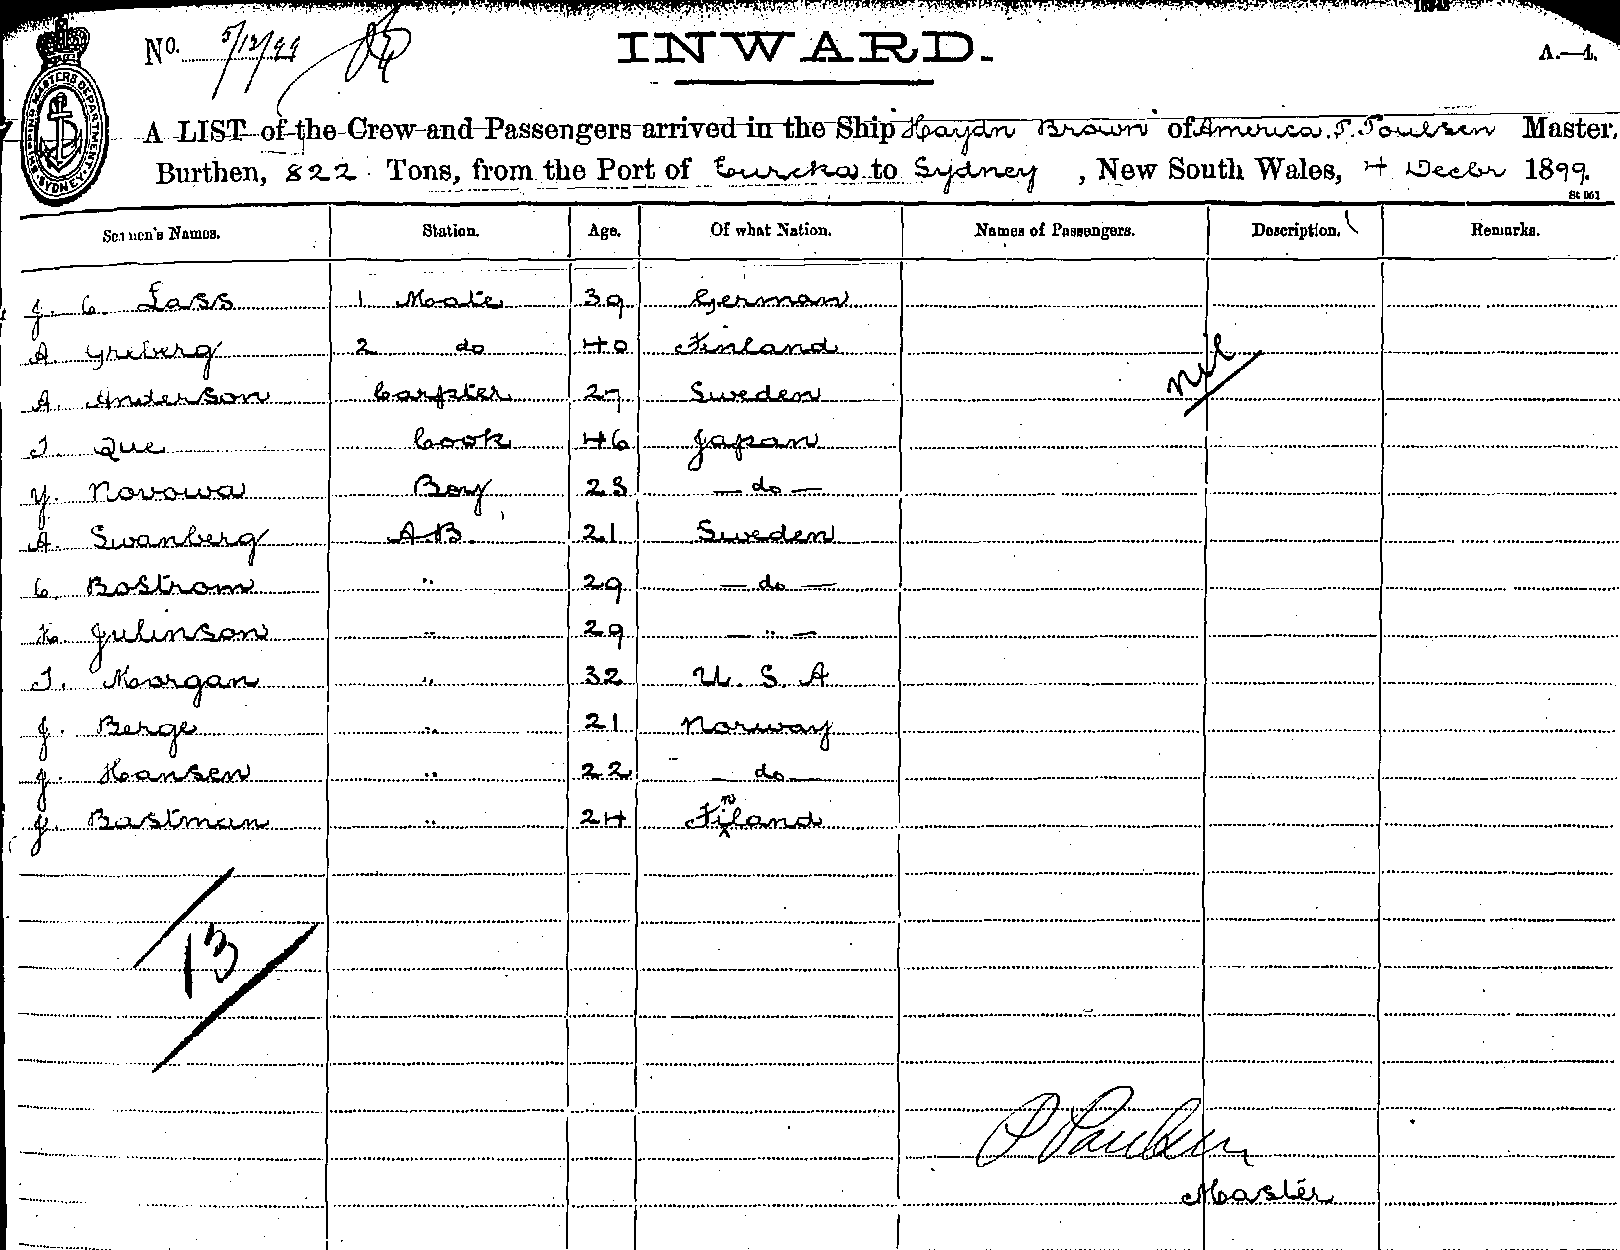 No. 5/12/99
INWARD.
A.—1.
SHIPPING MASTERS DEPARTMENT SYDNEY
A LIST of the Crew and Passengers arrived in the Ship Haydn Brown of America. P. Poulsen Master,
Burthen, 822 Tons, from the Port of Eureka to Sydney, New South Wales, 4 Decbr 1899.
Seamen's Names. Station. Age. Of what Nation. Names of Passengers. Description. Remarks.
J. C. Lass 1 Mate 39 German
A. Griberg 2 do 40 Finland
nil
A. Anderson Carpter 27 Sweden
T. Que Cook 46 Japan
Y. Novowa Boy 23 — do —
A. Swanberg A.B. 21 Sweden
C. Bostrom " 29 — do —
K. Julinson " 29 — " —
T. Morgan " 32 U. S. A
J. Berge " 21 Norway
J. Hansen " 22 — do —
J. Bastman " 24 Finland
13
P Paulsen
Master